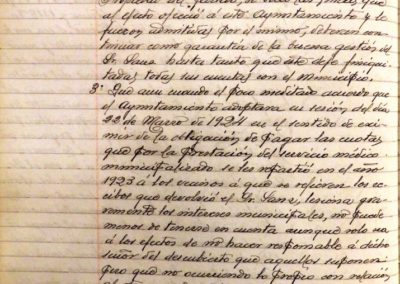 al efecto ofreció a este Ayuntamiento y le
fueron admitidas por el mismo, deberán con-
tinuar como garantía de la buena gestión del
Sr. Sanz hasta tanto que éste deje finiqui-
tadas todas sus cuentas con el Municipio.
3ª Que aun cuando el poco meditado acuerdo que
el Ayuntamiento adoptara en sesión del día
22 de Marzo de 1924 en el sentido de exi-
mir de la obligación de pagar las cuotas
que por la prestación del servicio médico
municipalizado se les repartió en el año
1923 á los vecinos á que se refieren los re-
cibos que devolvió el Sr. Sanz, lesiona gra-
vemente los intereses municipales, no puede
menos de tenerse en cuenta aunque solo sea
á los efectos de no hacer responsable á dicho
señor del descubierto que aquellos suponen
pero que no ocurriendo lo propio con relación